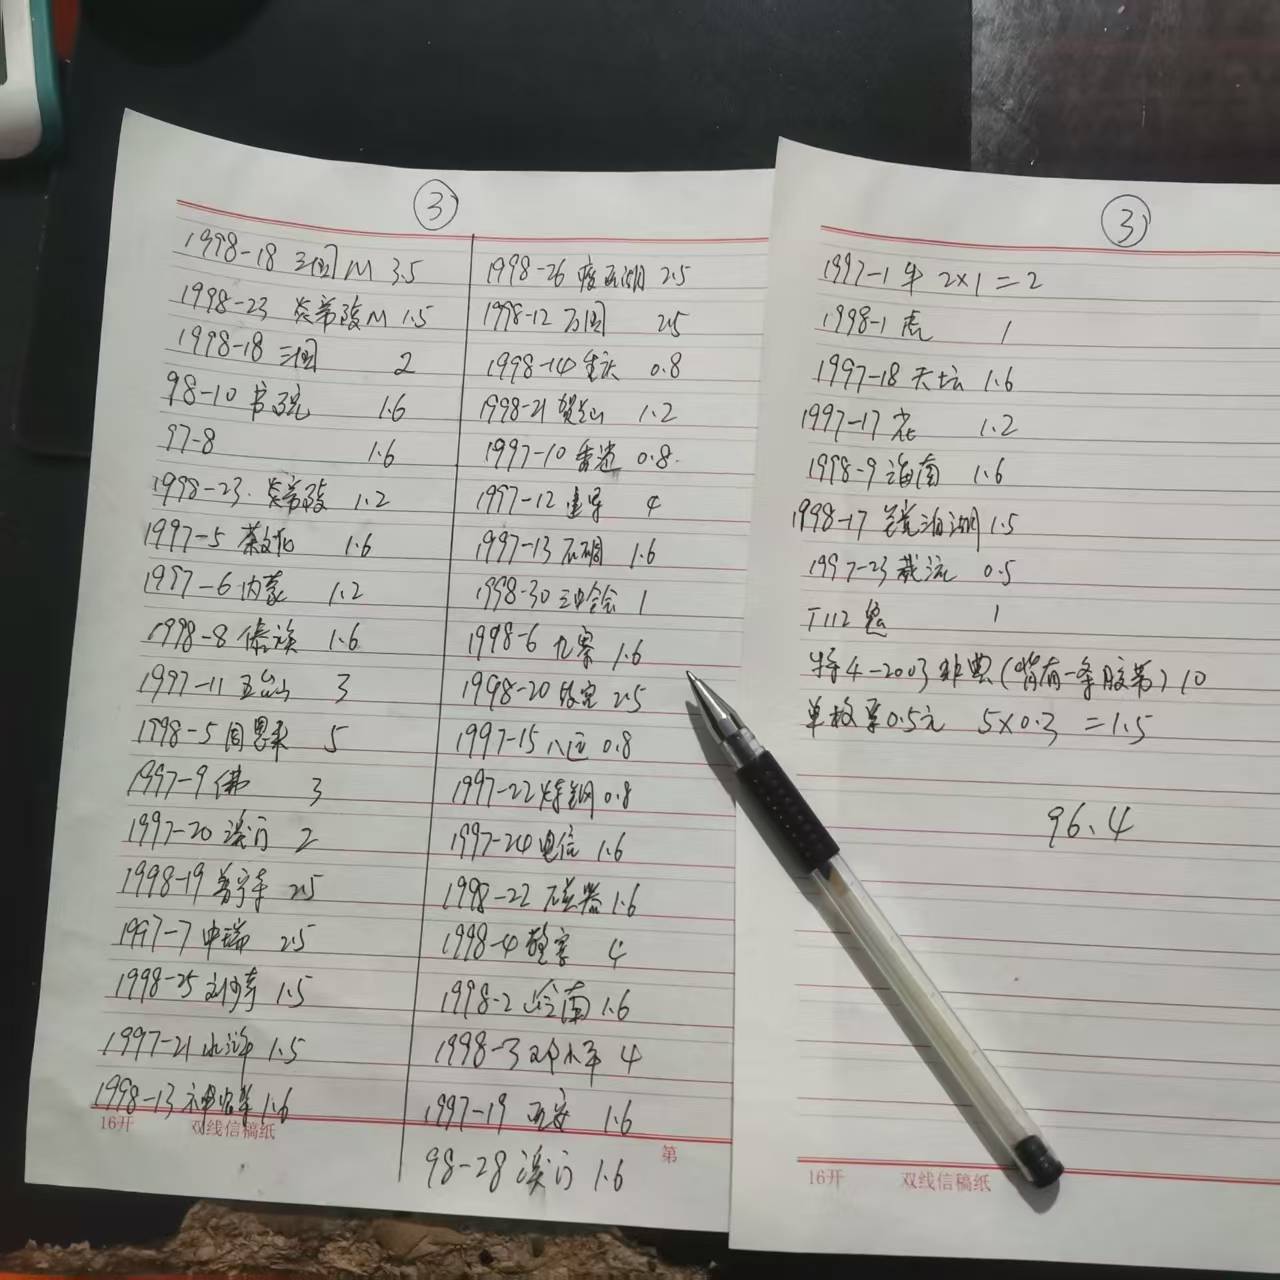 ③
1998-18 三国M 3.5
1998-23 炎帝陵M 1.5
1998-18 三国 2
98-10 书院 1.6
97-8 1.6
1998-23. 炎帝陵 1.2
1997-5 茶文化 1.6
1997-6 内蒙 1.2
1998-8 傣族 1.6
1997-11 五台山 3
1998-5 周恩来 5
1997-9 佛 3
1997-20 澳门 2
1998-19 普宁寺 2.5
1997-7 中瑞 2.5
1998-25 刘少奇 1.5
1997-21 水浒 1.5
1998-13 神临峯 1.6
1998-26 瘦西湖 2.5
1998-12 万国 2.5
1998-14 重庆 0.8
1998-21 贺兰山 1.2
1997-10 香港 0.8
1997-12 建军 4
1997-13 石碉 1.6
1998-30 三中全会 1
1998-6 九寨 1.6
1998-20 故宫 2.5
1997-15 八运 0.8
1997-22 炼钢 0.8
1997-24 电信 1.6
1998-22 瓷器 1.6
1998-4 警察 4
1998-2 岭南 1.6
1998-3 邓小平 4
1997-19 西安 1.6
98-28 澳门 1.6
16开 双线信稿纸 第
③
1997-1 牛 2×1=2
1998-1 虎 1
1997-18 天坛 1.6
1997-17 花 1.2
1998-9 海南 1.6
1998-17 镜泊湖 1.5
1997-23 截流 0.5
T112 1
特4-2003 非典(背有一条胶带) 10
单枚票0.5元 5×0.3 =1.5
96.4
16开 双线信稿纸